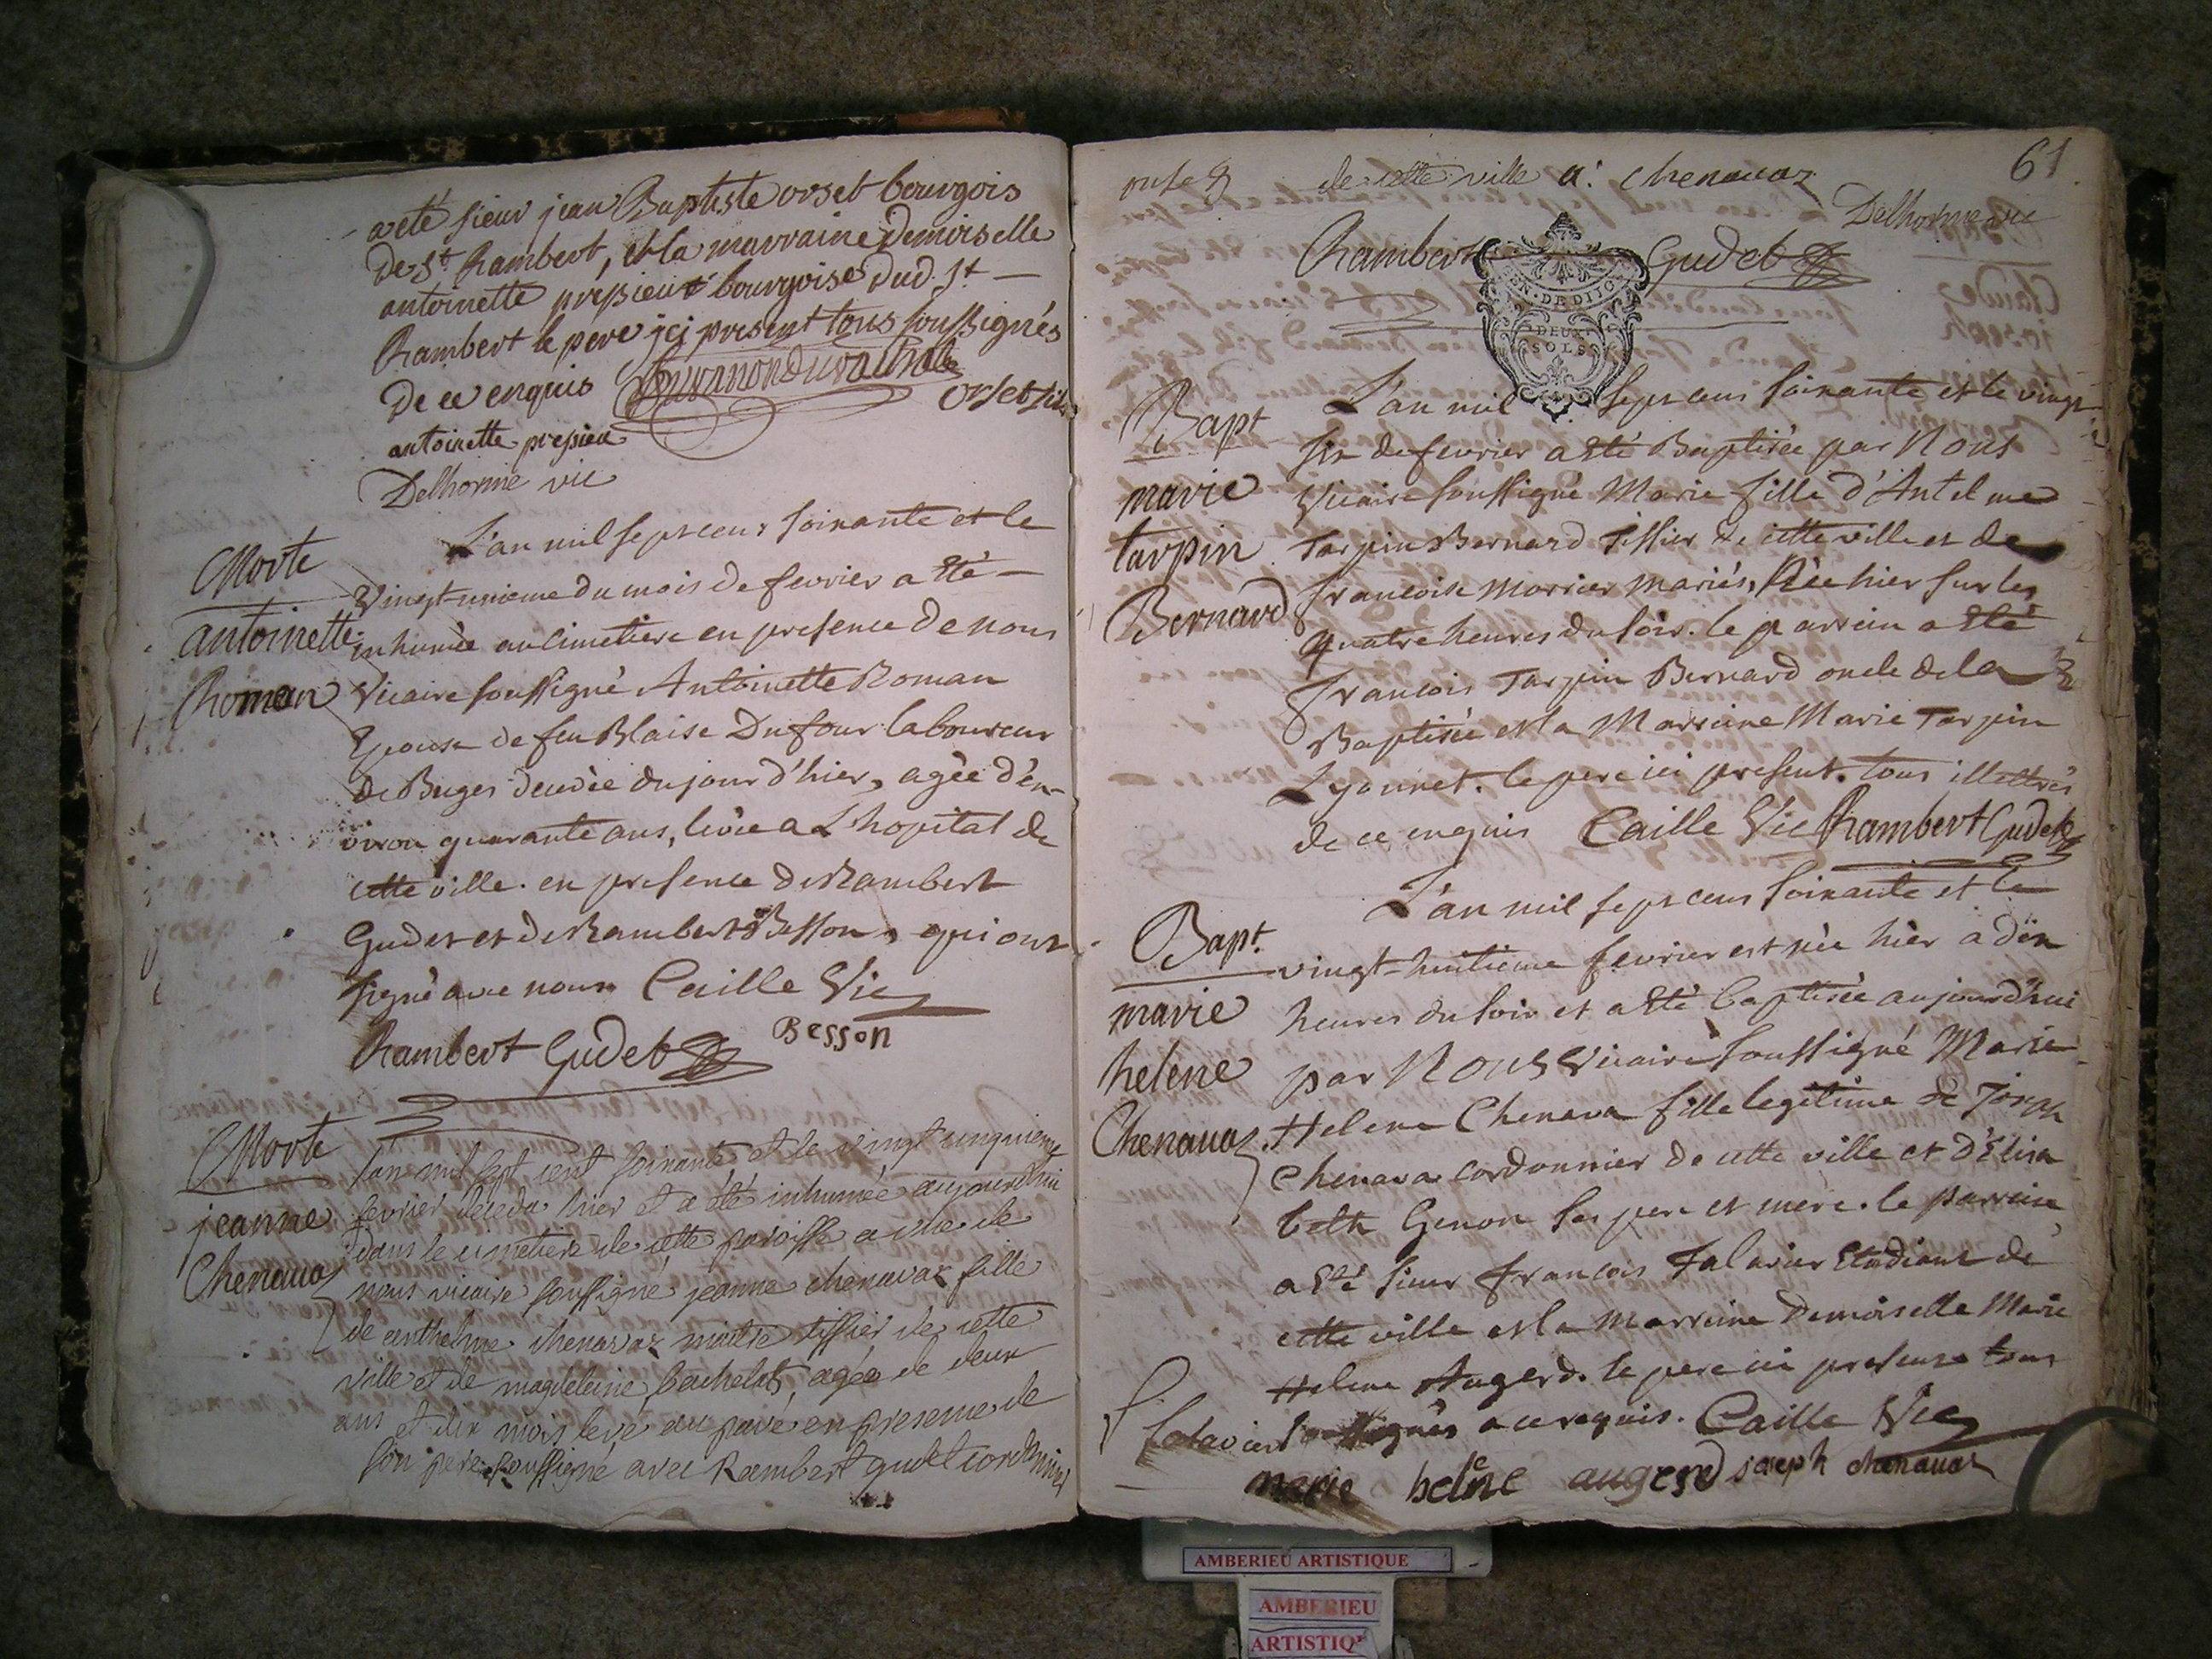 a eté sieur jean Baptiste orset bourgois
de St. Rambert, et la marraine Demoiselle
antoinette pressieux bourgoise dud. St
Rambert le pere ici present tous soussignés
de ce enquis
orset fils
antoinette pressieu
Delhorme vic
Morte
antoinette
Roman
L'an mil sept cens soixante et le
vingt unieme du mois de fevrier a Eté
inhumée au cimetiere en presence de nous
Vicaire soussigné Antoinette Roman
Epouse de feu Blaise Dufour laboureur
de Buges decedée du jour d'hier, agée d'en-
viron quarante ans, levée a L'hopital de
cette ville. en presence de Rambert
Gudet et de Rambert Besson, qui ont
signé avec nous Caille Vic
Rambert Gudet Besson
Morte
jeanne
Chenavaz
l'an mil sept cent soixante et le vingt cinquieme
fevrier deceda hier et a été inhumée aujourd'hui
dans le cimetiere de cette paroisse a vue de
nous vicaire soussigné jeanne chenavaz fille
de anthelme chenavaz maitre tissier de cette
ville et de magdeleine bachelet, agée de deux
ans et dix mois levé au pavé en presence de
son pere soussigné avec Rambert gudet cordonnier
61
de cette ville a: chenavaz
Delhorme vic
Rambert Gudet
GEN. DE DIJON
DEUX
SOLS
Bapt
marie
tarpin
Bernard
L'an mil sept cens soixante et le vingt
six de fevrier a Eté Baptisée par Nous
Vicaire soussigné Marie fille d'Antelme
Tarpin Bernard Tissier de cette ville et de
francoise Morrier Mariés, Née hier sur les
quatre heures du soir. le parrein a Eté
francois Tarpin Bernard oncle de la
Baptisée et la Marreine Marie Tarpin
Lyonnet. le pere ici present. tous illettrés
de ce enquis Caille Vic Rambert Gudet
Bapt.
marie
helene
Chenavaz
L'an mil sept cens soixante et le
vingt-huitieme fevrier est née hier a dix
heures du soir et a Eté baptisée aujourd'hui
par Nous Vicaire soussigné Marie
Helene Chenava fille legitime de Joseph
Chenava cordonnier de cette ville et d'Elisa
beth Genon ses pere et mere. le parreine
a Eté sieur francois Falavier Etudiant de
cette ville et la Marreine Demoiselle Marie
Helene Augerd. le pere ici present tous
soussignés a ce requis. Caille Vic
falavier
marie helene augerd joseph chenavaz
AMBERIEU ARTISTIQUE
AMBERIEU
ARTISTIQ